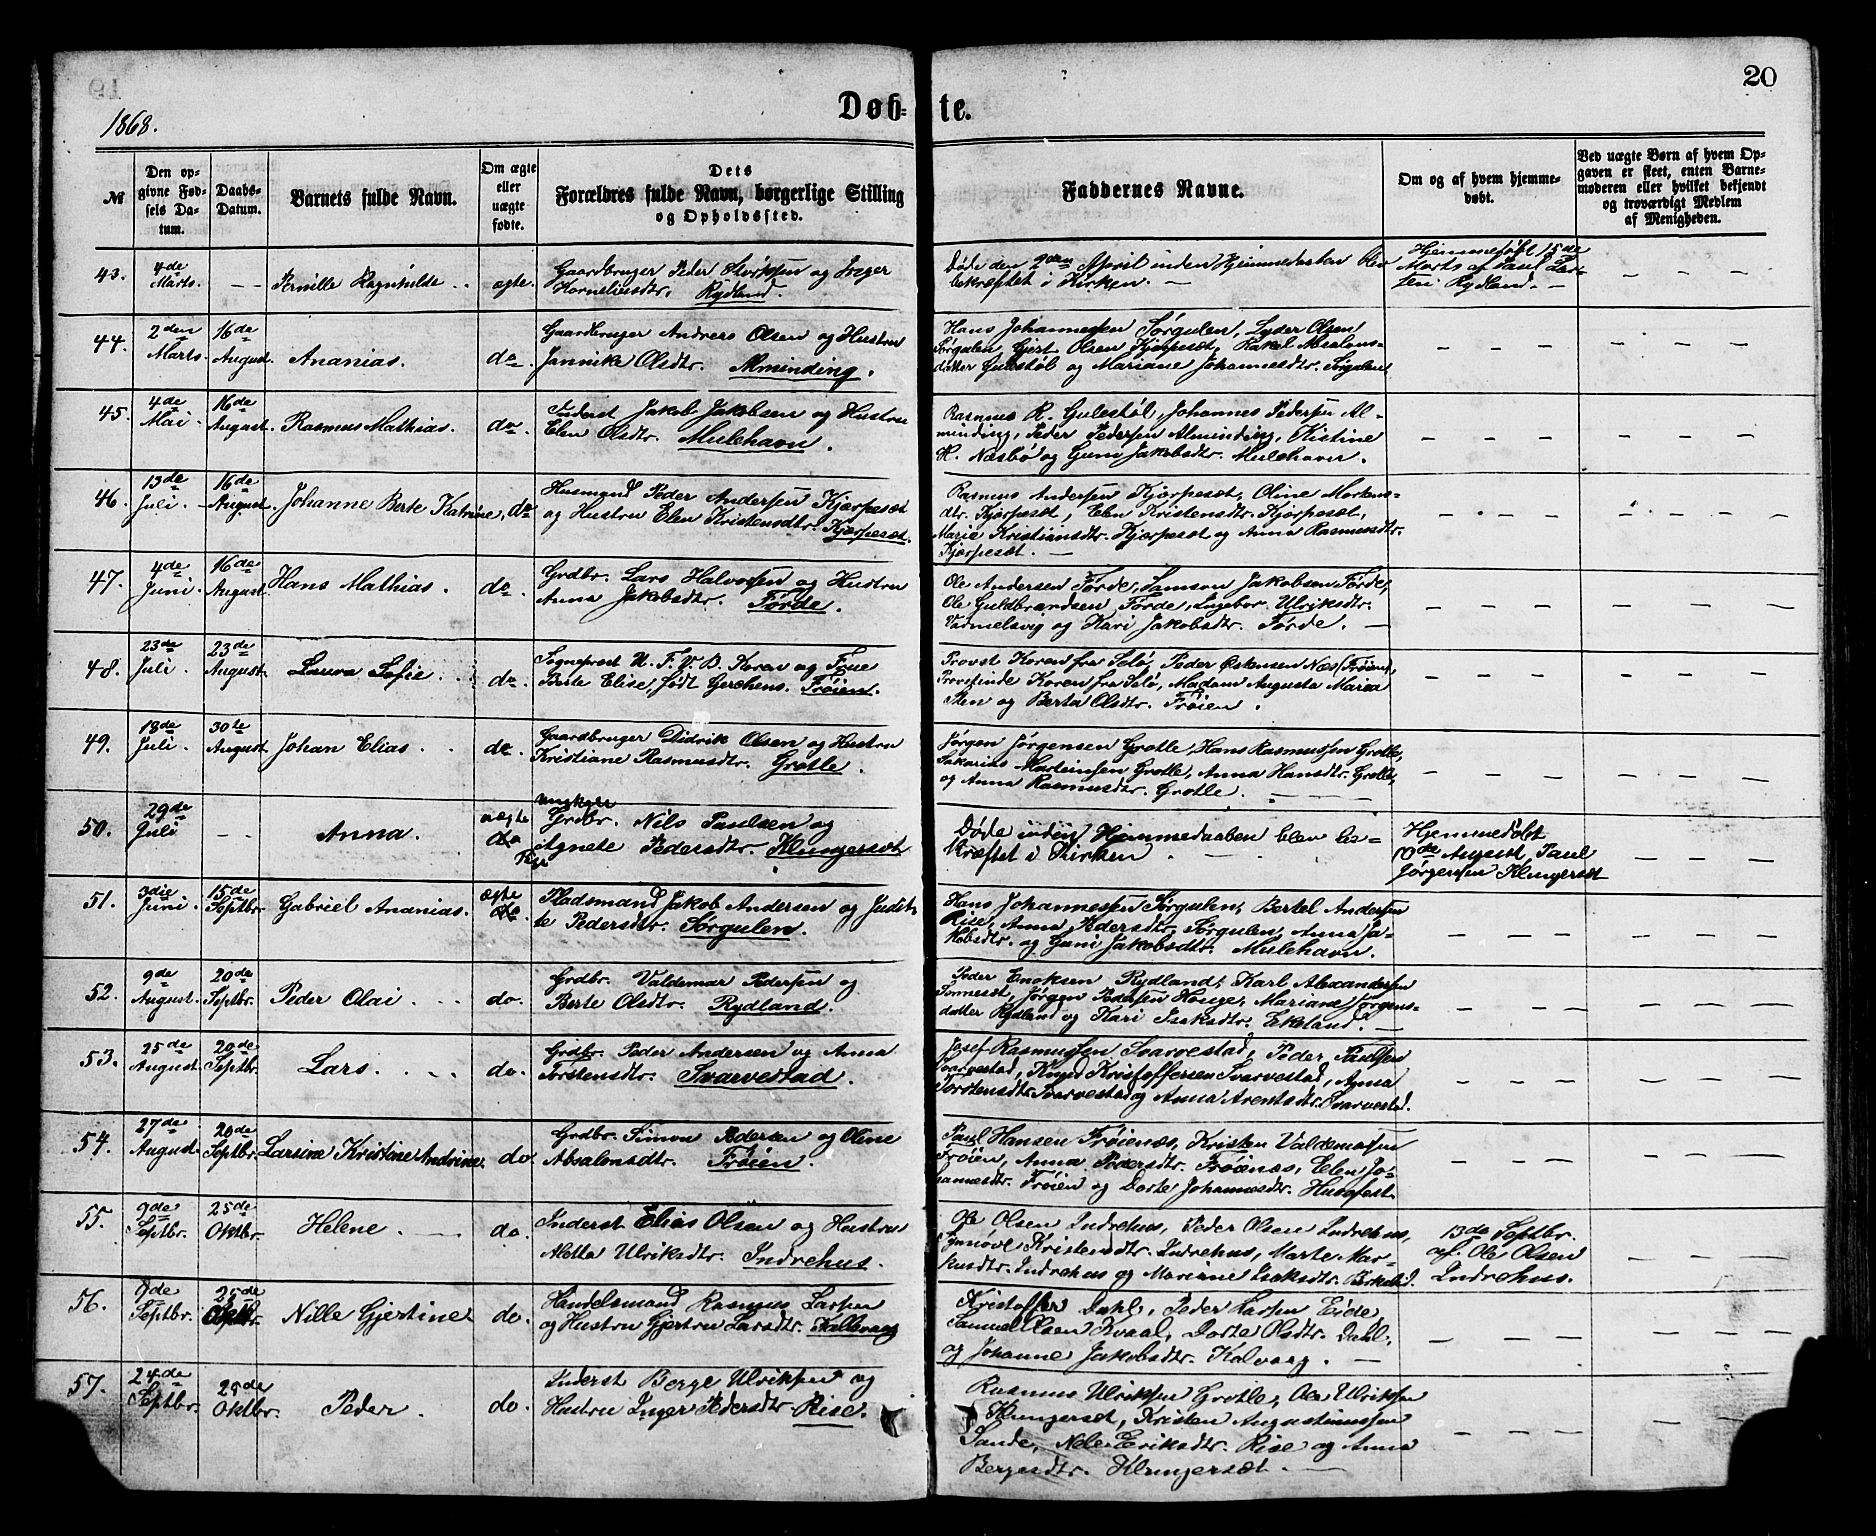 20
1868.
Døb- te.
№
Den op-
givne Fød-
sels Da-
tum.
Daabs-
Datum.
Barnets fulde Navn.
Om ægte
eller
uægte
fødte.
Dets
Forældres fulde Navn, borgerlige Stilling
og Opholdssted.
Faddernes Navne.
Om og af hvem hjemme-
døbt.
Ved uægte Børn af hvem Op-
gaven er skeet, enten Barne-
moderen eller hvilket bekjendt
og troværdigt Medlem
af Menigheden.
43. 4de Marts. — — Pernille Ragnhilde ægte.
Gaardbruger Peder Størksen og Inger
Korneliusdtr. Rydland.
Døde den 9den April inden Hjemmedaaben blev
bekræftet i Kirken. —
Hjemmedøbt 15de
Marts af Paul Lar-
sen Rydland. —
44. 2den Marts. 16de August Ananias. do.
Gaardbruger Andreas Olsen og Hustru
Jannike Olsdtr. Alminding.
Hans Johannessen Sørgulen, Lyder Olsen
Sørgulen, Gjert Olsen Kjørpesæt, Rakel Absalons-
datter Gulestøl og Mariane Johannesdtr. Sørgulen
45. 4de Mai 16de August. Rasmus Mathias. do.
Inderst Jakob Jakobsen og Hustru
Elen Olsdtr. Mulehavn.
Rasmus R. Gulestøl, Johannes Pedersen Al-
minding, Peder Pedersen Alminding, Kistine
H. Næsbø og Guni Jakobsdtr. Mulehavn.
46. 13de Juli. 16de August. Johanne Berte Katrine, do
Husmand Peder Andersen Kjørpesæt
og Hustru Elen Kristensdtr. Kjørpesæt.
Rasmus Andersen Kjørpesæt, Oline Mortens-
dtr. Kjørpesæt, Elen Kristensdtr. Kjørpesæt,
Marie Kristiansdtr. Kjørpesæt og Anna Rasmusdtr.
Kjørpesæt. —
47. 4de Juni. 16de August. Hans Mathias. do.
Grdbr. Lars Halvorsen og Hustru
Anna Jakobsdtr. Førde.
Ole Andersen Førde, Samson Jakobsen Førde,
Ole Guldbrandsen Førde, Ingebor. Ulriksdtr.
Varmelsvig og Kari Jakobsdtr. Førde. —
48. 23de Juli. 23de August. Laura Sofie. do.
Sognepræst U. F. V. B. Koren og Frue
Berte Elise, født Gerckens. Frøien.
Provst Koren fra Selø, Peder Østensen Næs (Frøien),
Provstinde Koren fra Selø, Madam Augusta Maria
Sten og Berta Olsdtr. Frøien.
49. 18de Juli. 30te August Johan Elias. do.
Gaardbruger Didrik Olsen og Hustru
Kristiane Rasmusdtr. Grotle.
Jørgen Jørgensen Grotle, Hans Rasmussen Grotle,
Sakarias Martinsen Grotle, Anna Hansdtr. Grotle,
og Anna Rasmusdtr. Grotle. —
50. 29de Juli — — Anna. uægte do
Ungkarl
Grdbr. Nils Paulsen og
Pige Agnete Pedersdtr. Klungersæt
Døde inden Hjemmedaaben blev be-
kræftet i Kirken. —
Hjemmedøbt
10de August, Paul
Jørgensen Klungersæt
51. 3die Juni 15de Septbr. Gabriel Ananias. ægte do.
Pladsmand Jakob Andersen og Judit-
te Pedersdtr. Sørgulen.
Hans Johannessen Sørgulen, Bertel Andersen
Rise, Anna Pedersdtr. Sørgulen, Anna Ja-
kobsdtr. og Guni Jakobsdtr. Mulehavn.
52. 9de August. 20de Septbr. Peder Olai. do.
Grdbr. Valdemar Pedersen og
Berte Olsdtr. Rydland.
Peder Enoksen Rydland, Karl Alexandersen
Sonnesæt, Jørgen Pedersen Houge, Mariane Jørgens-
datter Rydland og Kari Isaksdtr. Ekeland. —
53. 25de August. 20de Septbr. Lars. do.
Grdbr. Peder Andersen og Anna
Torstensdtr. Svarvestad.
Josef Rasmussen Svarvestad, Peder Paulsen
Svarvestad, Knud Kristoffersen Svarvestad, Anna
Torstensdtr. Svarvestad og Anna Arentsdtr. Svarvestad.
54. 27de August. 20de Septbr. Larsine Kristine Andrine. do
Grdbr. Simon Pedersen og Oline
Absalonsdtr. Frøien.
Paul Hansen Frøienæs, Kristen Valdemarsen
Frøien, Anna Pedersdtr. Frøienæs, Elen Jo-
hannesdtr. Frøien og Dorte Johannesdtr. Husefest.
55. 9de Septbr. 25de Oktbr. Helene. do.
Inderst Elias Olsen og Hustru
Aletta Ulriksdtr. Indrehus.
Ole Olsen Indrehus, Peder Olsen Indrehus,
Synnøve Kristensdtr. Indrehus, Marte Mar-
kusdtr. Indrehus og Mariane Isaksdtr. Birkeland.
13de Septbr.
af Ole Olsen
Indrehus.
56. 8de Septbr. 25de Oktbr. Nille Gjertine. do.
Handelsmand Rasmus Larsen
og Hustru Gjertru Larsdtr. Kalvaag
Kristoffer Dahl, Peder Larsen Eide,
Samuel Olsen Kvaal, Dorte Olsdtr. Dahl,
og Johanne Jakobsdtr. Kalvaag. —
57. 24de Septbr. 25de Oktbr. Peder. do.
Inderst Berge Ulriksen og
Hustru Inger Pedersdtr. Rise.
Rasmus Ulriksen Grotle, Ole Ulriksen
Klungersæt, Kristen Augustinussen
Sande, Nele Eriksdtr. Rise og Anna
Bergesdtr. Klungersæt. —